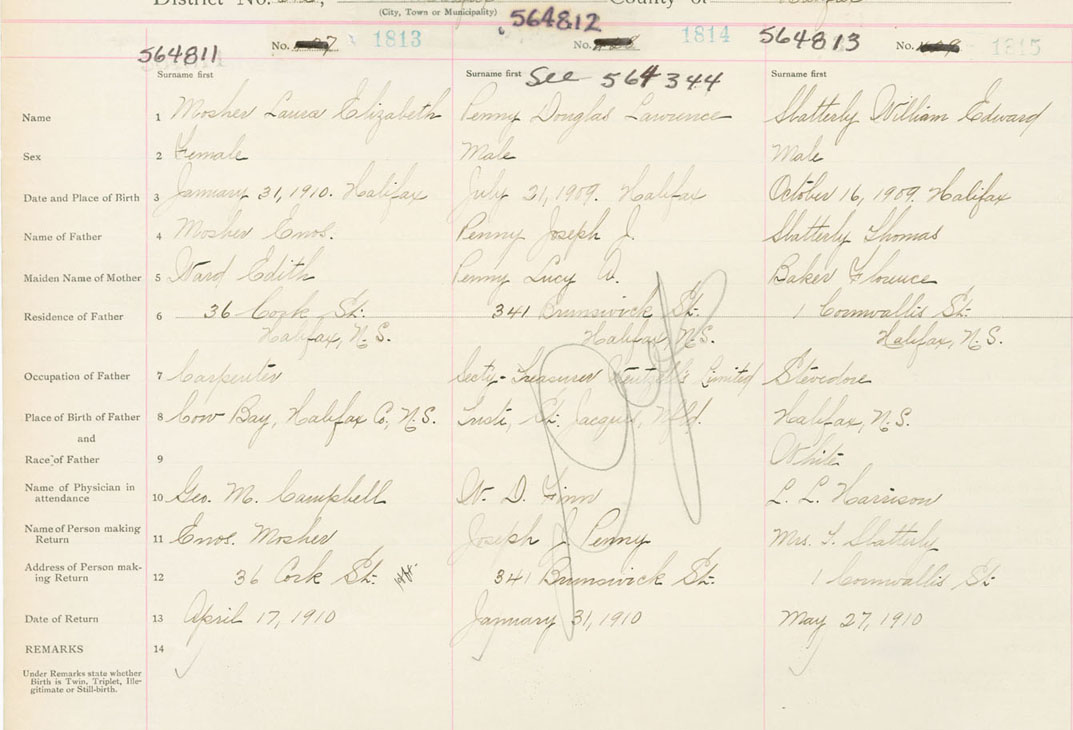 District No.
County of
(City, Town or Municipality)
564811 No. 1813
564812 No. 1814
564813 No. 1315
Surname first Surname first See 564344 Surname first
Name 1 Mosher Laura Elizabeth Penny Douglas Lawrence Slatterly William Edward
Sex 2 Female Male Male
Date and Place of Birth 3 January 31, 1910. Halifax July 21, 1909. Halifax October 16, 1909. Halifax
Name of Father 4 Mosher Enos. Penny Joseph J. Slatterly Thomas
Maiden Name of Mother 5 Ward Edith Penny Lucy Baker Florence
Residence of Father 6 36 Cork St. 341 Brunswick St. 1 Cornwallis St.
Halifax, N.S. Halifax, N.S. Halifax, N.S.
Occupation of Father 7 Carpenter Secty-Treasurer Limited Stevedore
Place of Birth of Father 8 Cow Bay, Halifax Co, N.S. St. Jacques, Nfld. Halifax, N.S.
and
Race of Father 9 White
Name of Physician in
attendance 10 Geo. M. Campbell W. D. Finn L. L. Harrison
Name of Person making
Return 11 Enos. Mosher Joseph J Penny Mrs. T. Slatterly
Address of Person mak-
ing Return 12 36 Cork St. Hfx. 341 Brunswick St. 1 Cornwallis St.
Date of Return 13 April 17, 1910 January 31, 1910 May 27, 1910
REMARKS 14
Under Remarks state whether
Birth is Twin, Triplet, Ille-
gitimate or Still-birth.